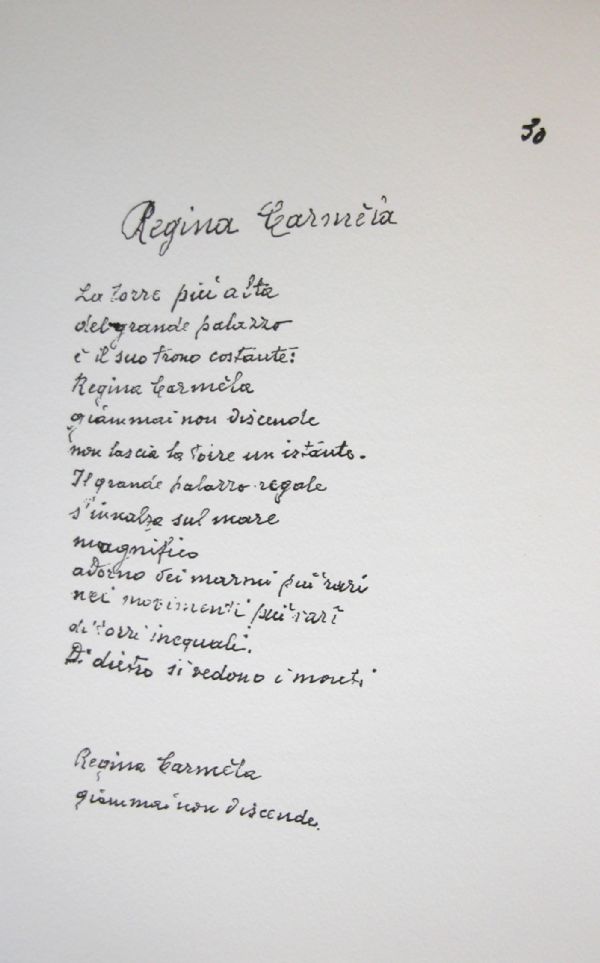 30
Regina Carmèla
La torre più alta
del grande palazzo
è il suo trono costante:
Regina Carmèla
giammai non discende
non lascia la torre un istante.
Il grande palazzo regale
s'innalza sul mare
magnifico
adorno dei marmi più rari
nei movimenti più rari
di torri ineguali.
Di dietro si vedono i monti
Regina Carmèla
giammai non discende.